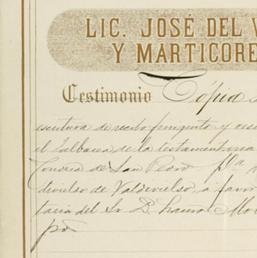 LIC. JOSÉ DEL V
Y MARTICORE
Testimonio Cópia
escritura de recibo finiquito y
el Albacea de la testamentaria
Condesa de San Pedro
divieso de Valdivielso, a favor
taria del Sr. D.
por